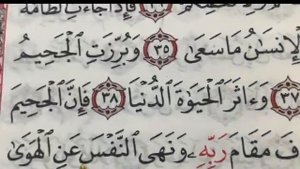 فَإِذَا جَآءَتِ ٱلطَّآمَّةُ
ٱلْإِنسَٰنُ مَا سَعَىٰ ٣٥ وَبُرِّزَتِ ٱلْجَحِيمُ
٣٧ وَءَاثَرَ ٱلْحَيَوٰةَ ٱلدُّنْيَا ٣٨ فَإِنَّ ٱلْجَحِيمَ
فَ مَقَامَ رَبِّهِۦ وَنَهَى ٱلنَّفْسَ عَنِ ٱلْهَوَىٰ